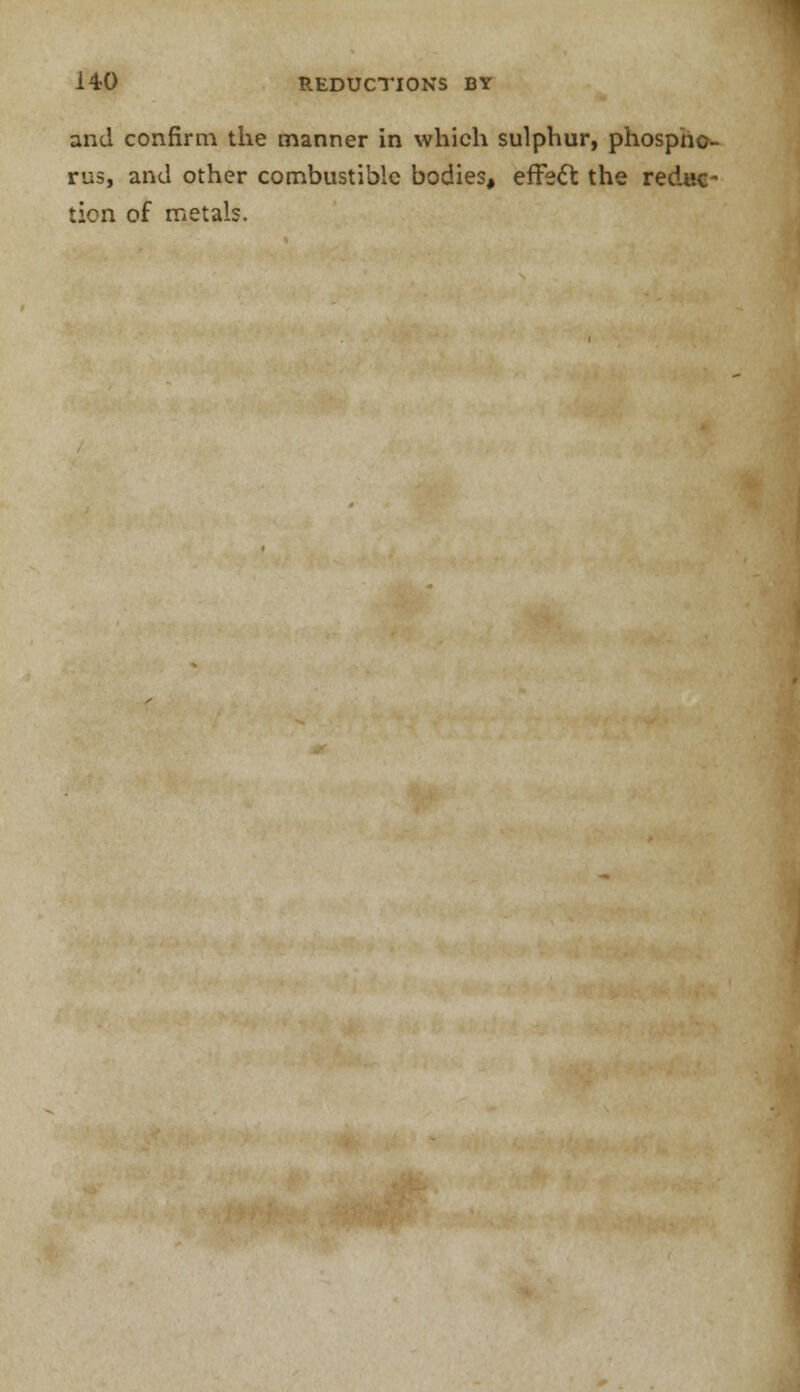 140 REDUCTIONS BY
and confirm the manner in which sulphur, phospho-
rus, and other combustible bodies, effect the reduc-
tion of metals.